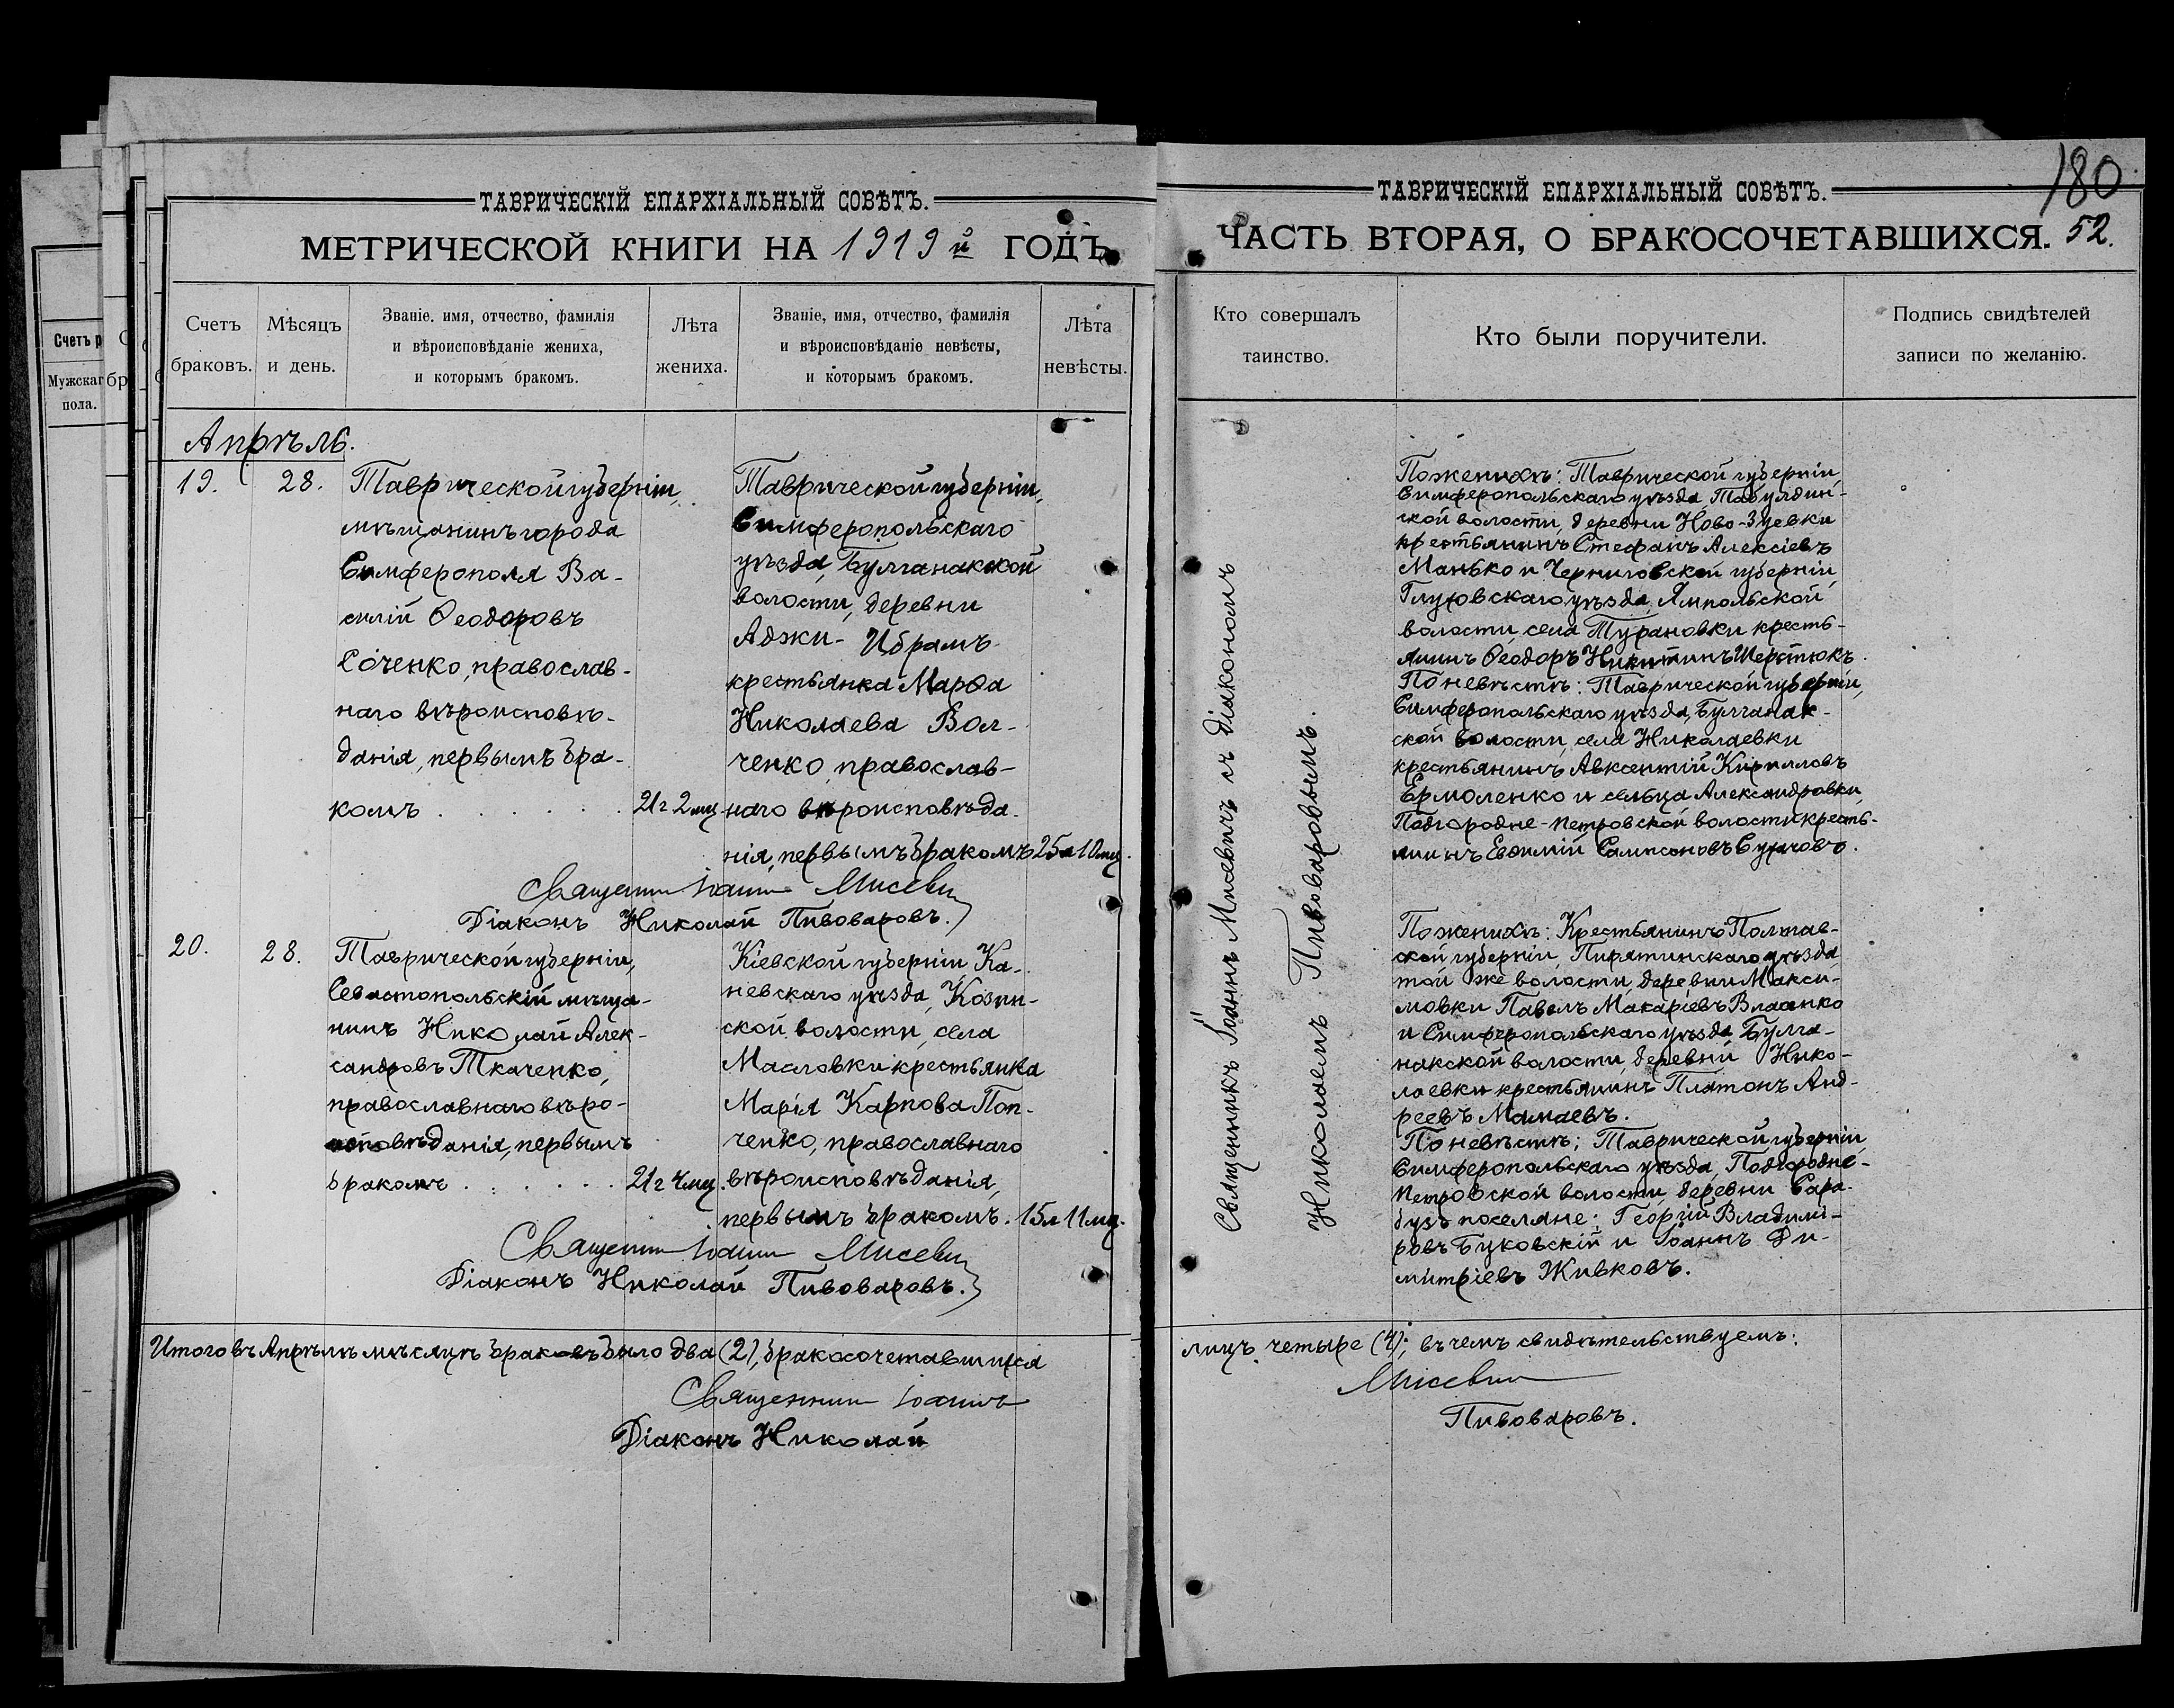 ТАВРИЧЕСКІЙ ЕПАРХІАЛЬНЫЙ СОВѢТЪ.
МЕТРИЧЕСКОЙ КНИГИ НА 1919й ГОДЪ
Счетъ браковъ.
Мѣсяцъ и день.
Званіе, имя, отчество, фамилія
и вѣроисповѣданіе жениха,
и которымъ бракомъ.
Лѣта жениха.
Званіе, имя, отчество, фамилія
и вѣроисповѣданіе невѣсты,
и которымъ бракомъ.
Лѣта невѣсты.
Апрѣль.
19.
28.
Таврической губерніи,
мѣщанинъ города
Симферополя Ва-
силій Ѳеодоровъ
Соченко, православ-
наго вѣроисповѣ-
данія, первымъ бра-
комъ . . . . . .
21г 2мц
Таврической губерніи,
Симферопольскаго
уѣзда, Булганакской
волости, деревни
Аджи-Ибрамъ
крестьянка Марѳа
Николаева Вол-
ченко, православ-
наго вѣроисповѣда-
нія, первымъ бракомъ
25л 10мц.
Священни Іоанн Мисеви
Діаконъ Николай Пивоваровъ.
20.
28.
Таврической губерніи,
Севастопольскій мѣща-
нинъ Николай Алек-
сандровъ Ткаченко,
православнаго вѣро-
исповѣданія, первымъ
бракомъ . . . . . .
21г 4мц.
Кіевской губерніи Ка-
невскаго уѣзда, Козин-
ской волости, села
Масловки крестьянка
Марія Карпова Поп-
ченко, православнаго
вѣроисповѣданія,
первымъ бракомъ.
15л 11мц.
Священни Іоанн Мисеви
Діаконъ Николай Пивоваровъ.
Итого въ Апрѣлѣ мѣсяцѣ браковъ было два (2), бракосочетавшихся
Священник Іоаннъ
Діаконъ Николай
180
ТАВРИЧЕСКІЙ ЕПАРХІАЛЬНЫЙ СОВѢТЪ.
ЧАСТЬ ВТОРАЯ, О БРАКОСОЧЕТАВШИХСЯ. 52.
Кто совершалъ таинство.
Кто были поручители.
Подпись свидѣтелей
записи по желанію.
Священникъ Іоаннъ Мисевичъ съ Діакономъ
Николаемъ Пивоваровымъ.
По женихѣ: Таврической губерніи,
Симферопольскаго уѣзда, Табулдин-
ской волости, деревни Ново-Зуевки
крестьянинъ Стефанъ Алексіевъ
Манько и Черниговской губерніи,
Глуховскаго уѣзда, Ямпольской
волости, села Турановки кресть-
янинъ Ѳеодоръ Никитинъ Шерстюкъ.
По невѣстѣ: Таврической губерніи,
Симферопольскаго уѣзда, Булганак-
ской волости, села Николаевки
крестьянинъ Авксентій Кирилловъ
Ермоленко и сельца Александровки,
Подгородне-Петровской волости кресть-
янинъ Евѳимій Сампсоновъ
По женихѣ: Крестьянинъ Полтав-
ской губерніи, Пирятинскаго уѣзда
той же волости, деревни Макси-
мовки Павелъ Макаріевъ Власенко
и Симферопольскаго уѣзда, Булга-
накской волости, деревни Нико-
лаевки крестьянинъ Платонъ Анд-
реевъ Мамаевъ.
По невѣстѣ; Таврической губерніи,
Симферопольскаго уѣзда, Подгородне-
Петровской волости, деревни Сара-
бузъ поселяне: Георгій Владимі-
ровъ Буковскій и Іоаннъ Ди-
митріевъ Живковъ.
лицъ четыре (4); въ чемъ свидѣтельствуемъ:
Мисевич
Пивоваровъ.
Счетъ р
Мужскаг
пола.